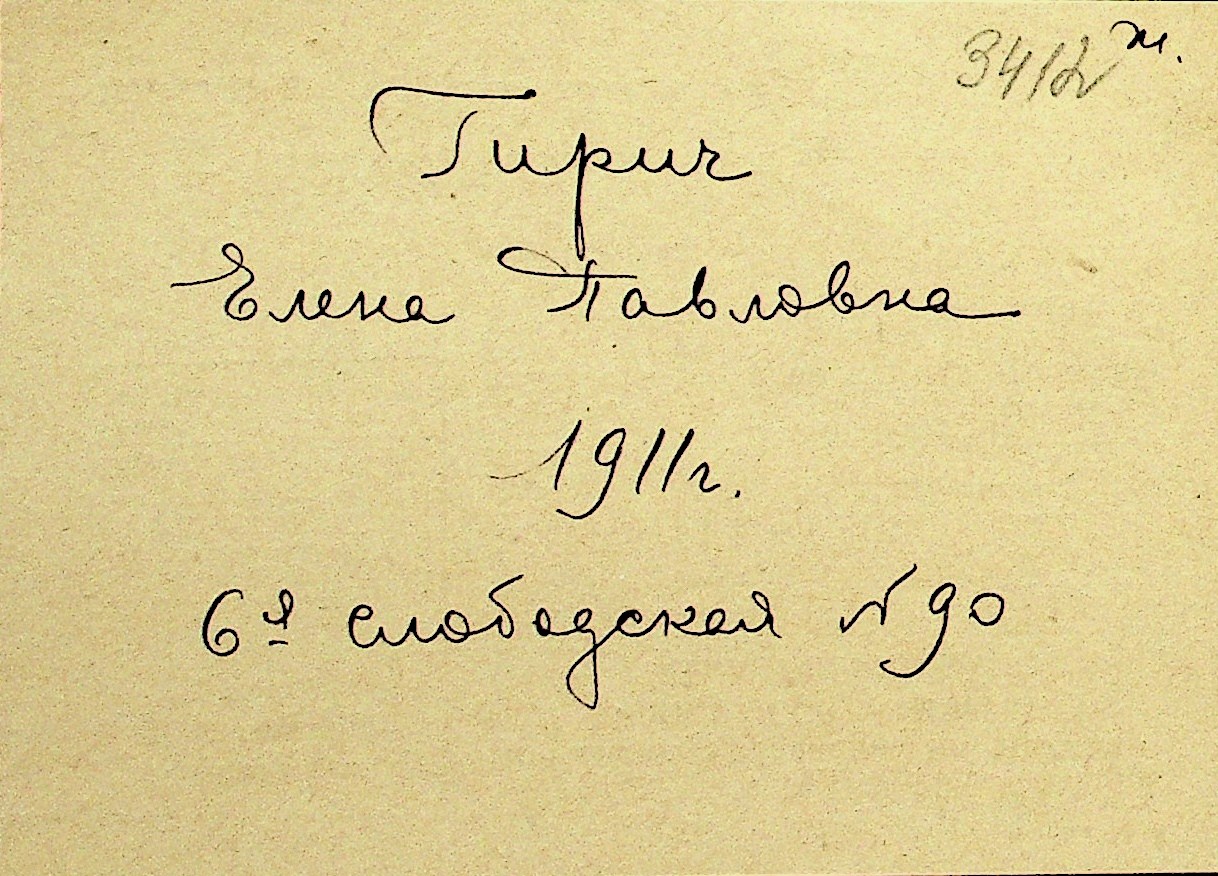 3412 ж.
Гирич
Елена Павловна
1911г.
6я слободская № 90